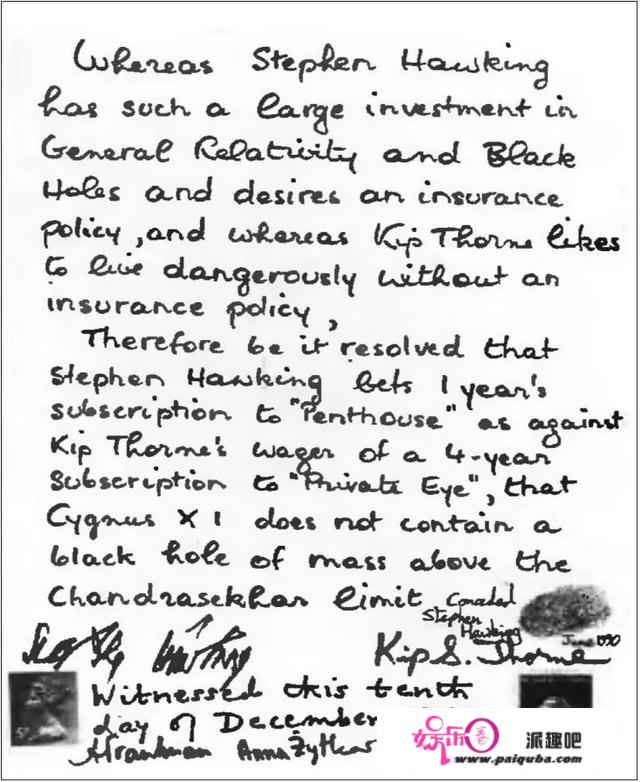 Whereas Stephen Hawking
has such a large investment in
General Relativity and Black
Holes and desires an insurance
policy, and whereas Kip Thorne likes
to live dangerously without an
insurance policy,
Therefore be it resolved that
Stephen Hawking bets 1 year's
subscription to "Penthouse" as against
Kip Thorne's wager of a 4-year
subscription to "Private Eye", that
Cygnus X 1 does not contain a
black hole of mass above the
Chandrasekhar limit
Conceded
Stephen
Hawking
June 1990
Kip S. Thorne
Witnessed this tenth
day of December
Anna Żytkow
娱乐圈 派趣吧
www.paiquba.com